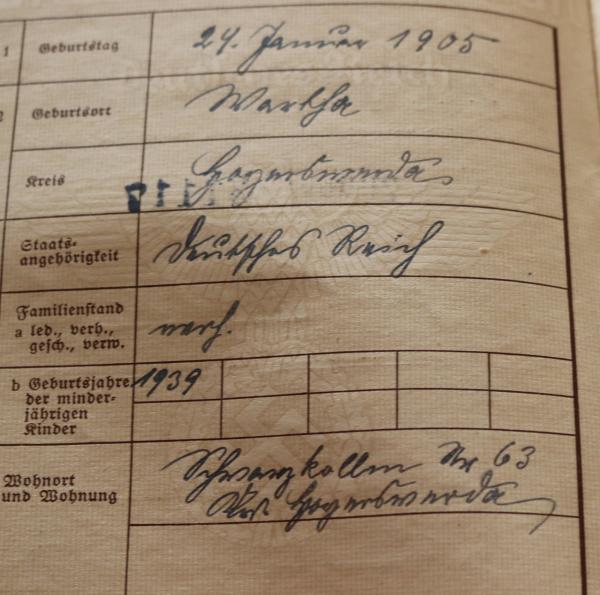 1 Geburtstag 24. Januar 1905
Geburtsort Wartha
Kreis Hoyerswerda
Staats-
angehörigkeit Deutsches Reich
Familienstand
a led., verh.,
gesch., verw. verh.
b Geburtsjahre 1939
der minder-
jährigen
Kinder
Wohnort Schwarzkollm Nr 63
und Wohnung Krs. Hoyerswerda